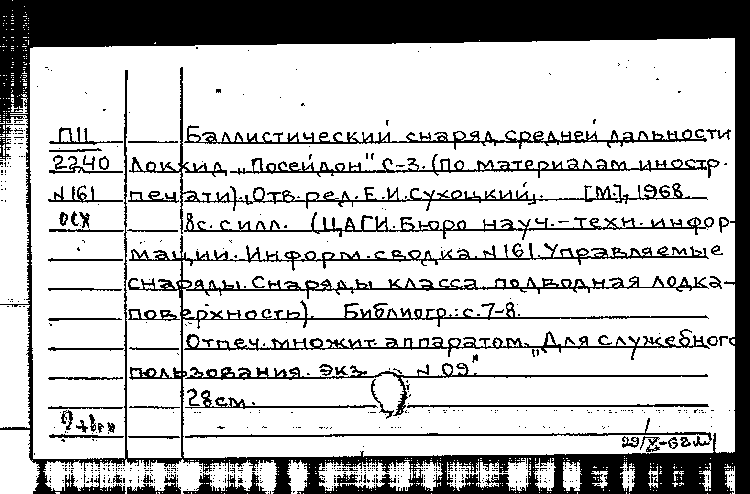 П11 Баллистический снаряд средней дальности
2240 Локхид „Посейдон" С-3. (По материалам иностр.
N161 печати). Отв. ред. Е.И. Сухоцкий. [М.], 1968
8с. с илл. (ЦАГИ. Бюро науч.-техн. инфор-
мации. Информ. сводка. N161. Управляемые
снаряды. Снаряды класса подводная лодка-
поверхность). Библиогр.: с. 7-8.
Отпеч. множит. аппаратом. „Для служебного
пользования. Экз. N 09."
28см.
29/X-68